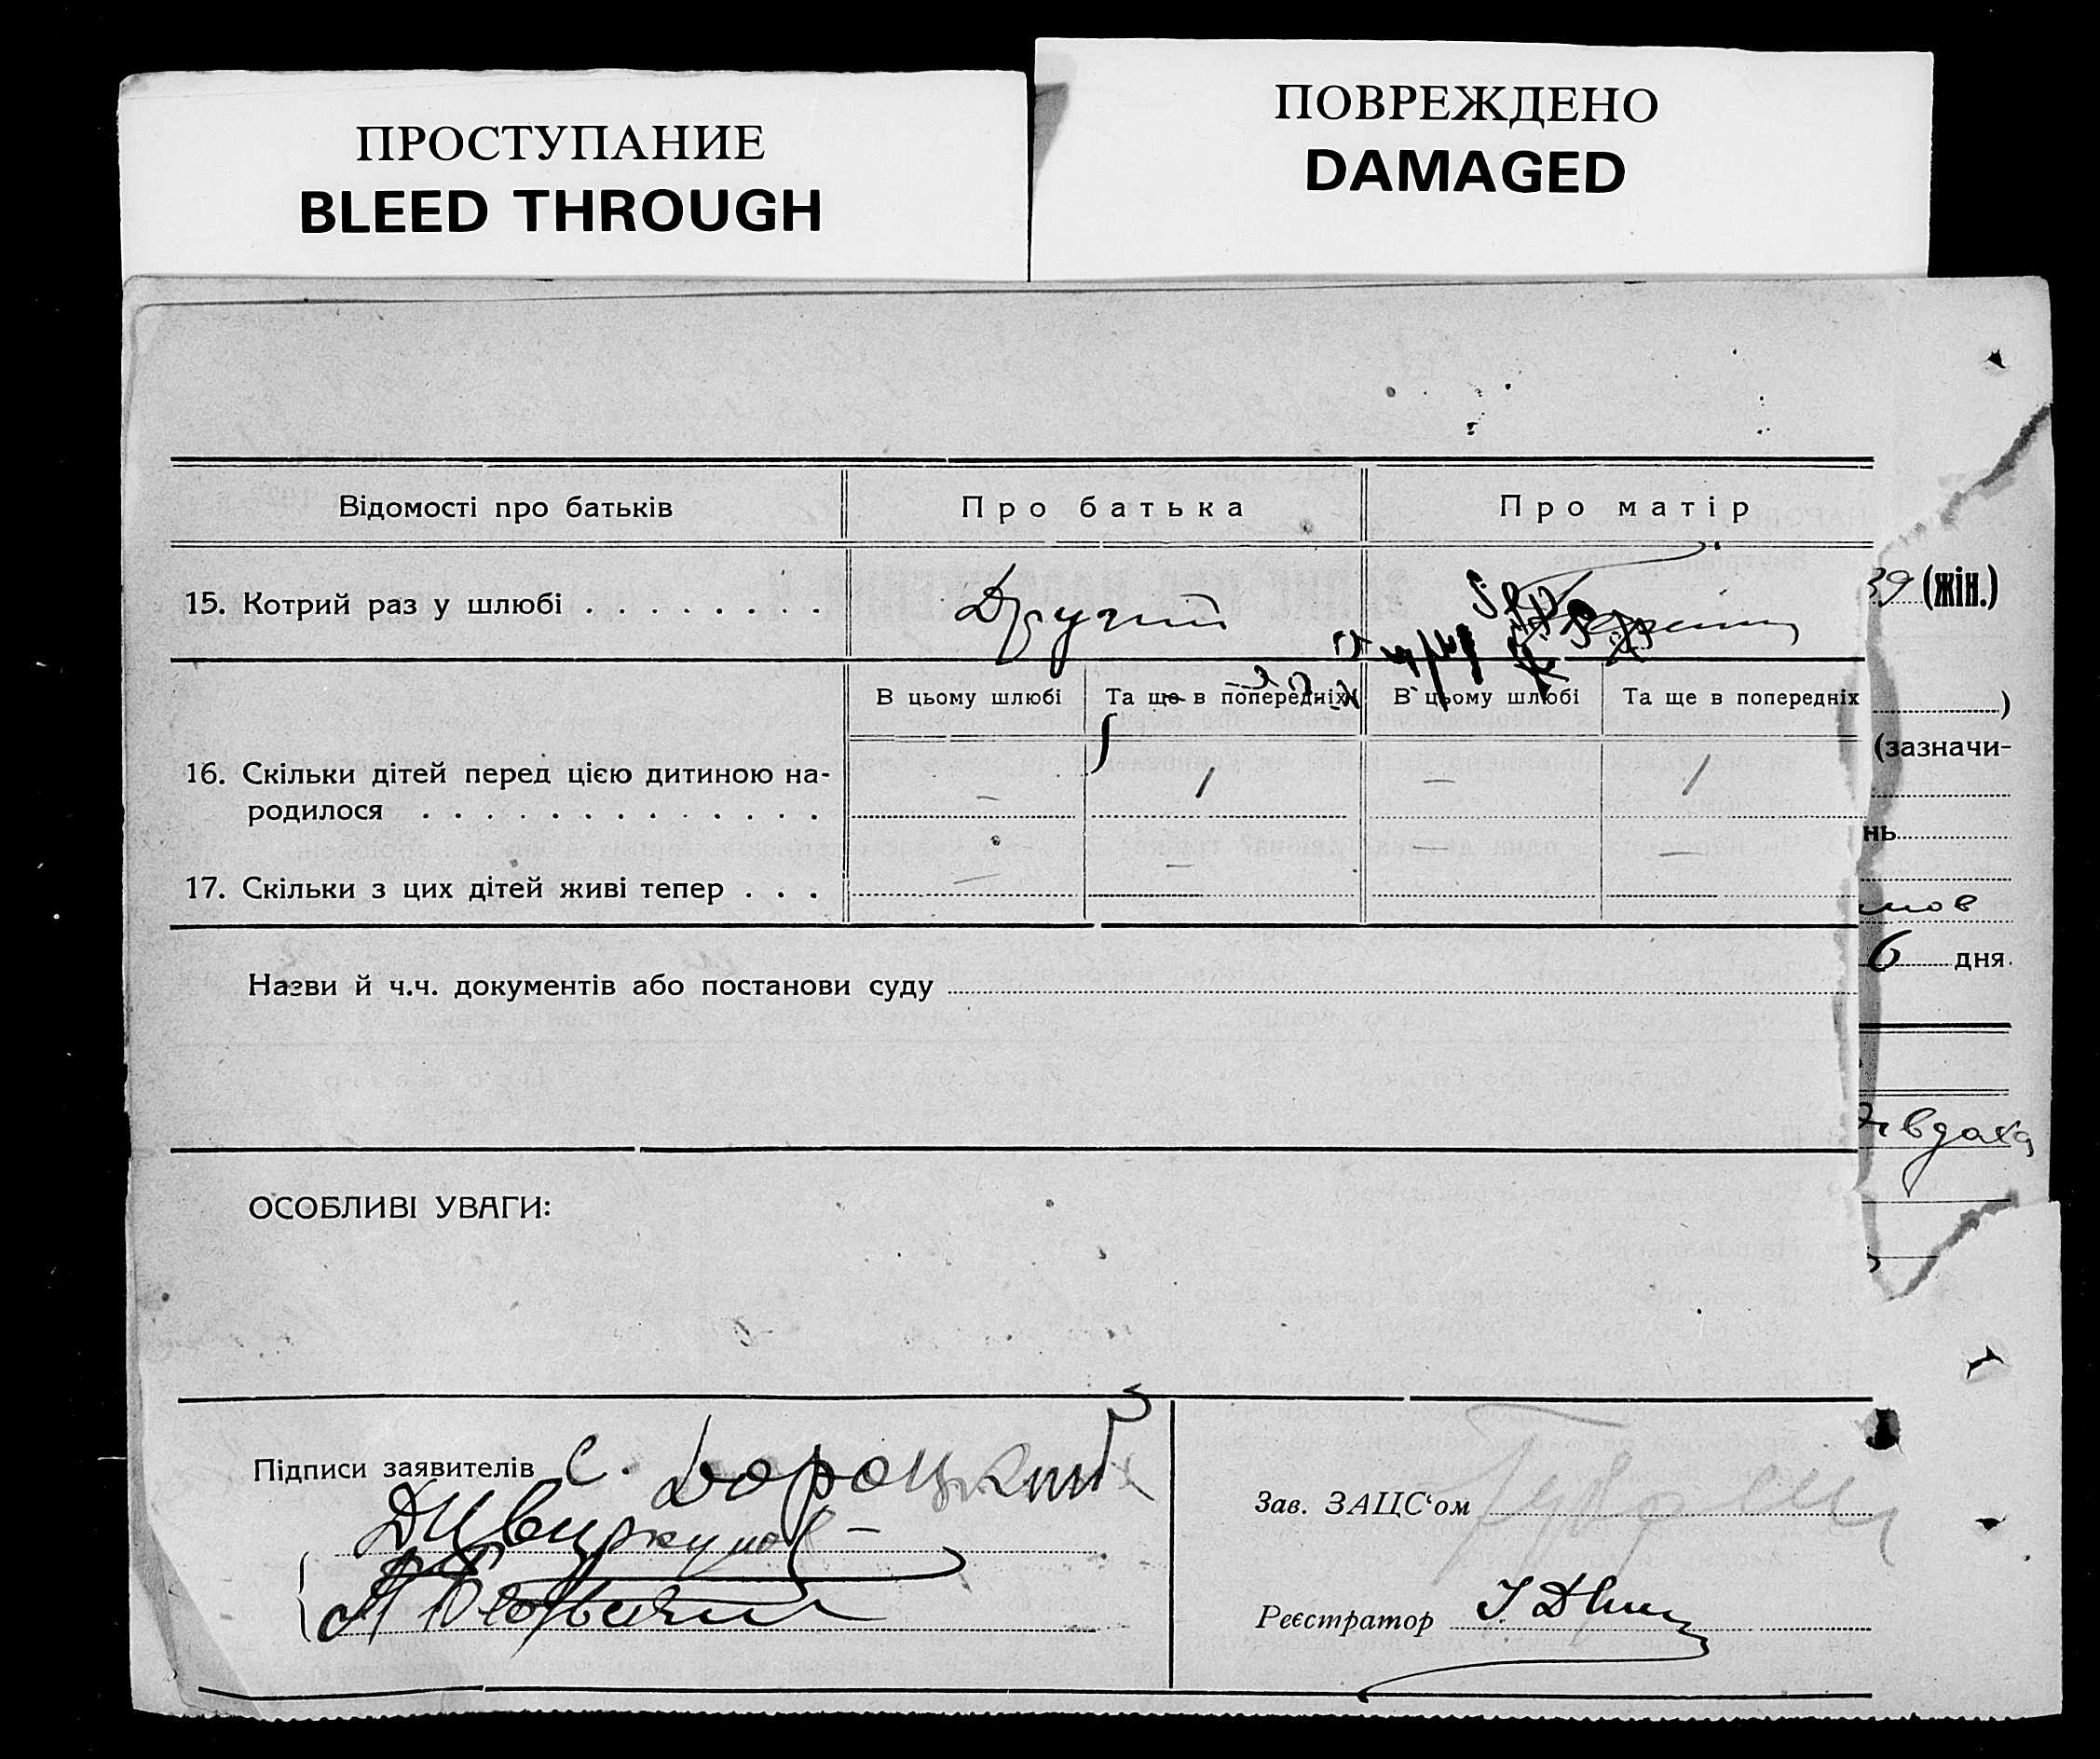 ПРОСТУПАНИЕ
BLEED THROUGH
ПОВРЕЖДЕНО
DAMAGED
Відомості про батьків
Про батька
Про матір
15. Котрий раз у шлюбі
Другий
39 (жін.)
В цьому шлюбі
Та ще в попередніх
В цьому шлюбі
Та ще в попередніх
)
(зазначи-
16. Скільки дітей перед цією дитиною на-
родилося
–
1
–
1
нь
17. Скільки з цих дітей живі тепер
–
–
–
–
6 дня
Назви й ч.ч. документів або постанови суду
ОСОБЛИВІ УВАГИ:
Підписи заявителів
С.
Зав. ЗАЦС'ом
Реєстратор